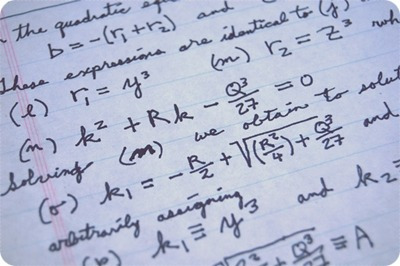 the quadratic eq
b = -(r₁ + r₂) and
These expressions are identical to (j)
(l) r₁ = y³ (m) r₂ = z³ wh
(n) k² + Rk - Q³/27 = 0
Solving (m) we obtain to solut
(o) k₁ = -R/2 + √((R²/4) + Q³/27) and
arbitrarily assigning
(p) k₁ ≡ y³ and k₂ =
+ Q³/27 ≡ A